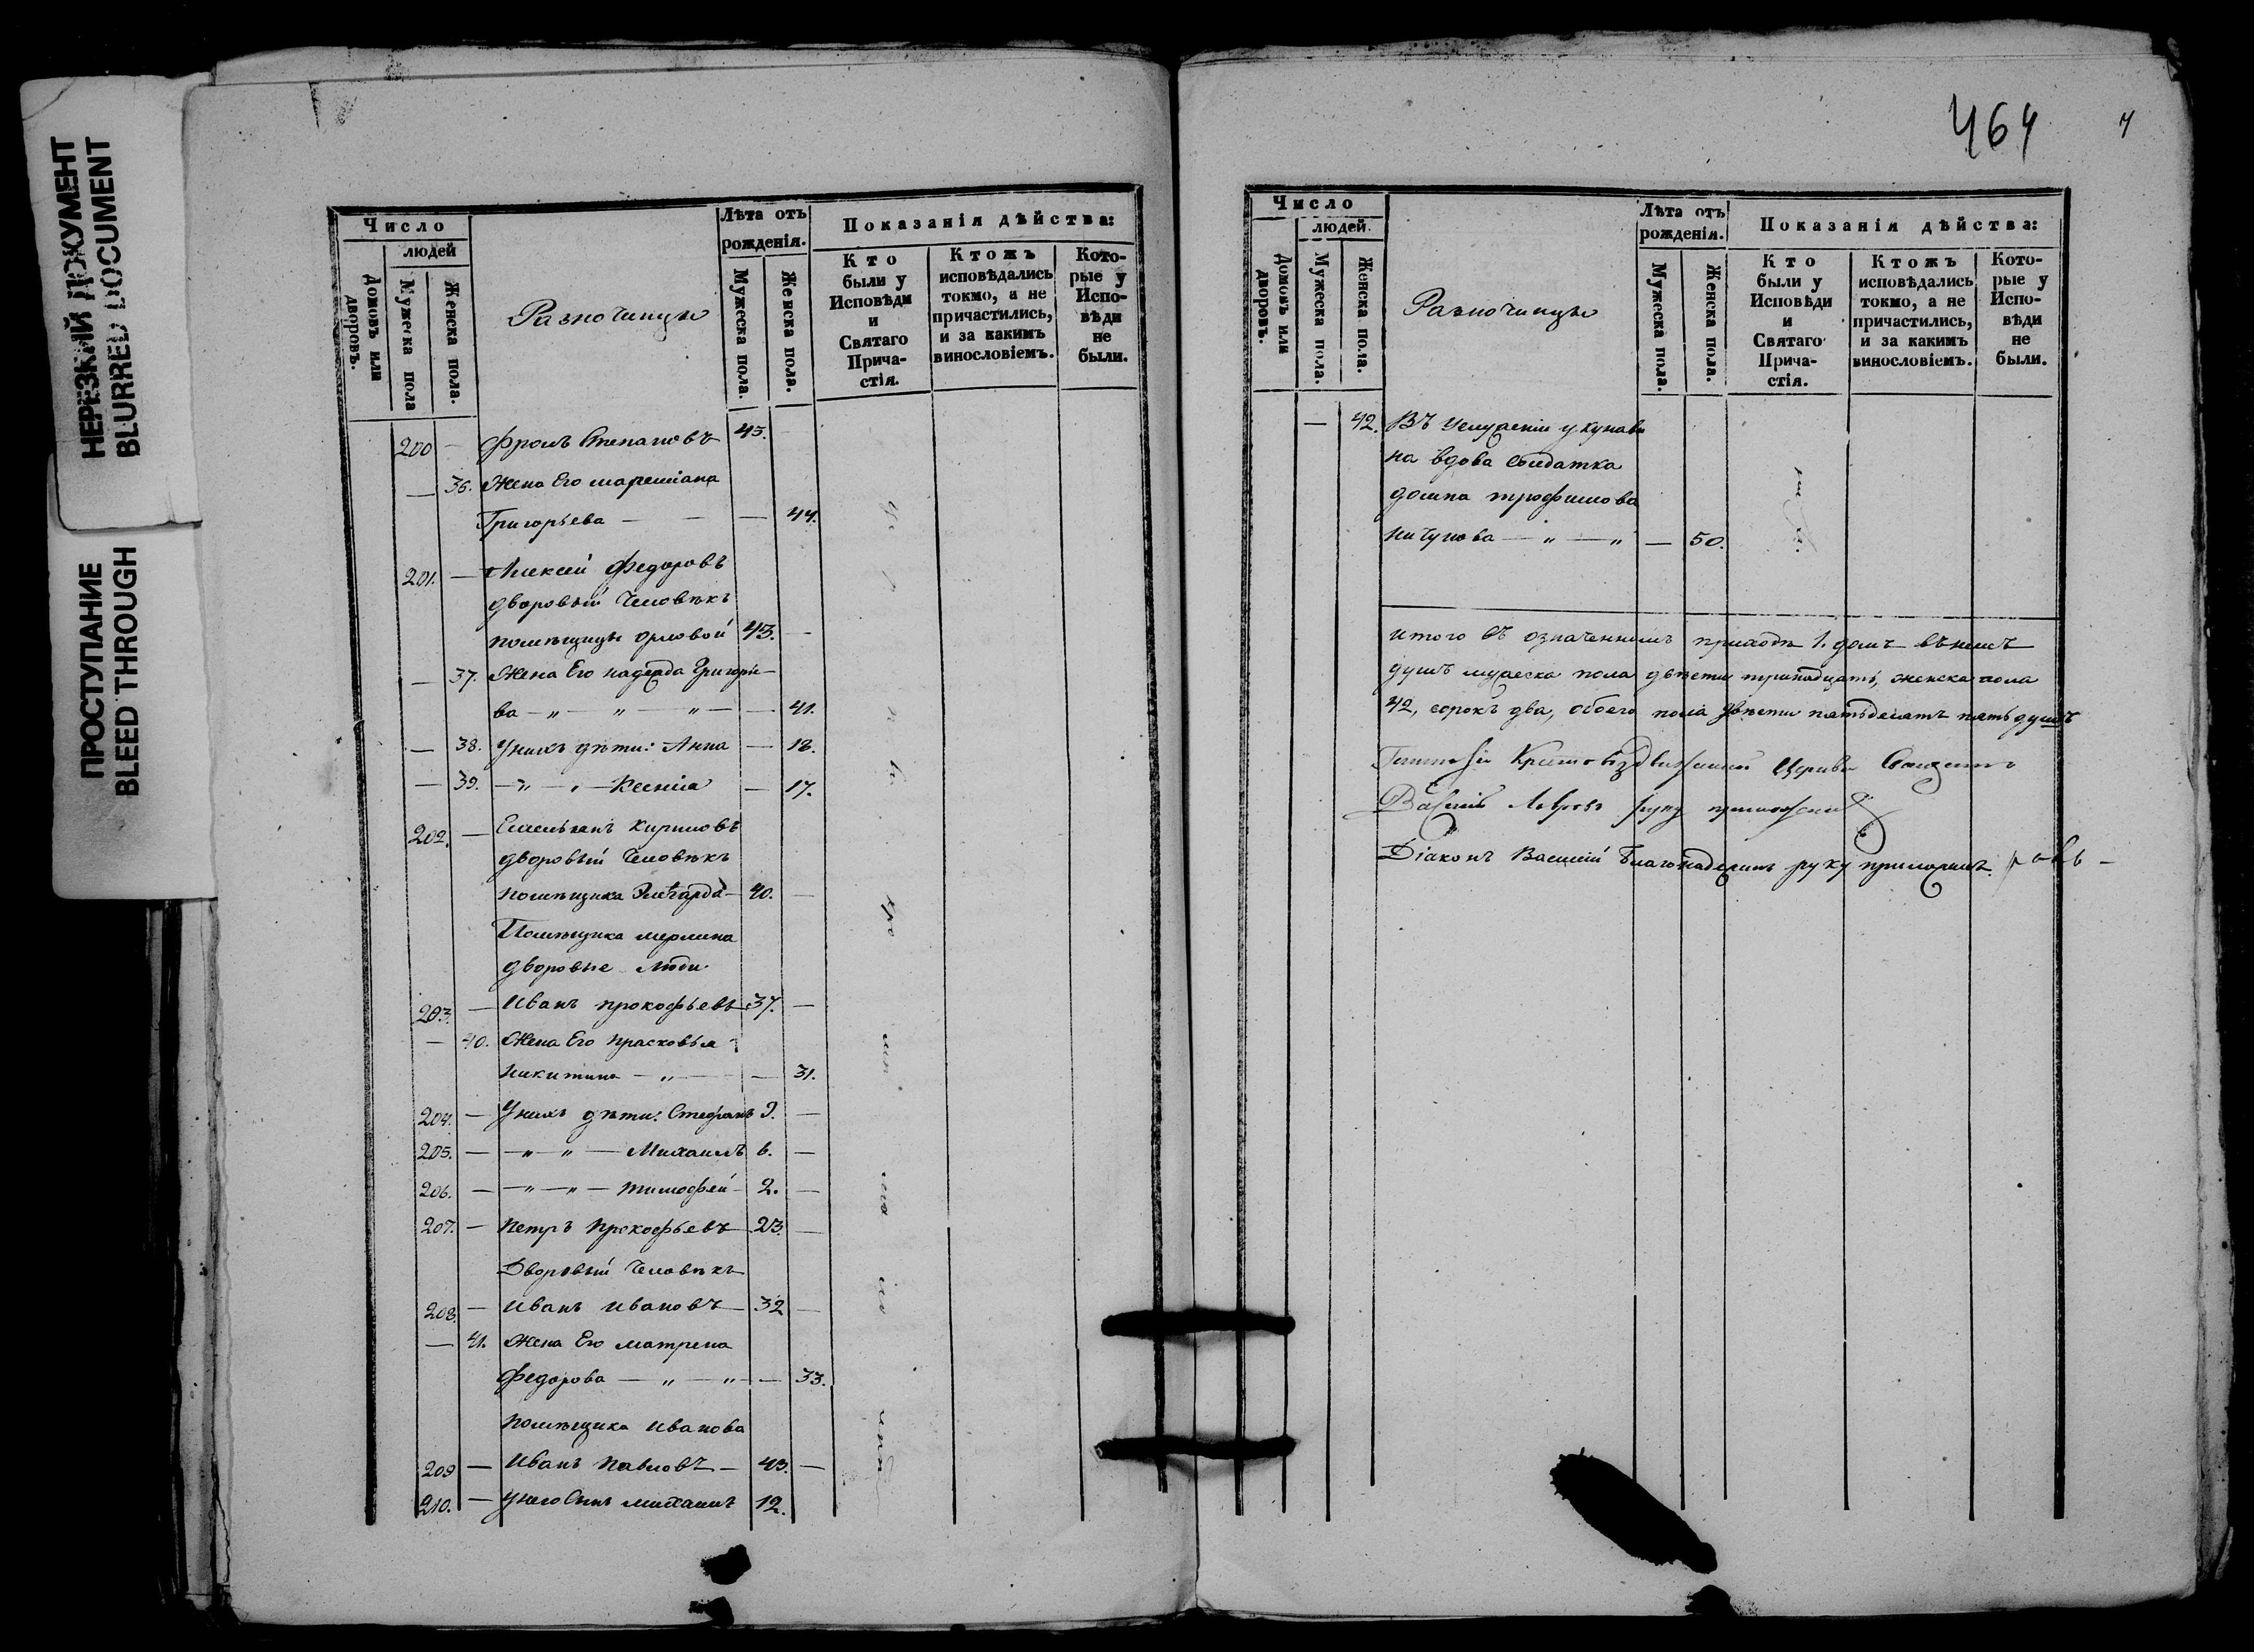 НЕРЕЗКИЙ ДОКУМЕНТ
BLURRED DOCUMENT
ПРОСТУПАНИЕ
BLEED THROUGH
Число
людей
Домовъ или дворовъ.
Мужеска пола
Женска пола.
Разночинцы
Лѣта отъ рожденія.
Мужеска пола.
Женска пола.
Показанія дѣйства:
Кто были у Исповѣди и Святаго Прича-стія.
Ктожъ исповѣдались токмо, а не причастились, и за какимъ винословіемъ.
Кото-рые у Испо-вѣди не были.
200 — Фролъ Степановъ 45.
— 36. Жена Его
Григорьева — — — 44.
201. — Алексѣй Федоровъ
дворовый Человѣкъ
помѣщицы орловой 43. —
— 37. Жена Его надежда Григорье-
ва — „ — „ — „ — — 41.
— 38. Унихъ дѣти: Анна — 18.
— 39. — „ — „ — Ксенія — 17.
202. — Емельянъ Кириловъ
дворовый Человѣкъ
помѣщика 40. —
Помѣщика мерлина
дворовые люди
203. — Иванъ прокофьевъ 37. —
— 40. Жена Его прасковья
никитина — „ — — 31.
204. — Унихъ дѣти: Стефанъ 9. —
205. — — „ „ — Михаилъ 6. —
206. — — „ — „ — тимофей — 2. —
207. — Петръ Прокофьевъ 23. —
Дворовый Человѣкъ
208. — Иванъ Ивановъ — 32 —
— 41. Жена Его матрена
Федорова — „ — „ — — 33.
помѣщика Иванова
209 — Иванъ павловъ — 43. —
210. — унего Сынъ михаилъ 12.
464
Число
людей.
Домовъ или дворовъ.
Мужеска пола.
Женска пола.
Разночинцы
Лѣта отъ рожденія.
Мужеска пола.
Женска пола.
Показанія дѣйства:
Кто были у Исповѣди и Святаго Прича-стія.
Ктожъ исповѣдались токмо, а не причастились, и за какимъ винословіемъ.
Кото-рые у Испо-вѣди не были.
— 42. Въ Услуженіи у
на вдова Солдатка
домна трофимова
— „ — „ — 50.
итого въ означенномъ приходѣ 1. домъ внемъ
душъ мужеска пола двѣсти тринадцать, женска пола
42, сорокъ два, обоего пола двѣсти пятьдесятъ пять душъ
Крестовоздвиженской Церкви Священникъ
Василій руку приложилъ
Діаконъ Василій Благонадеждинъ руку приложилъ